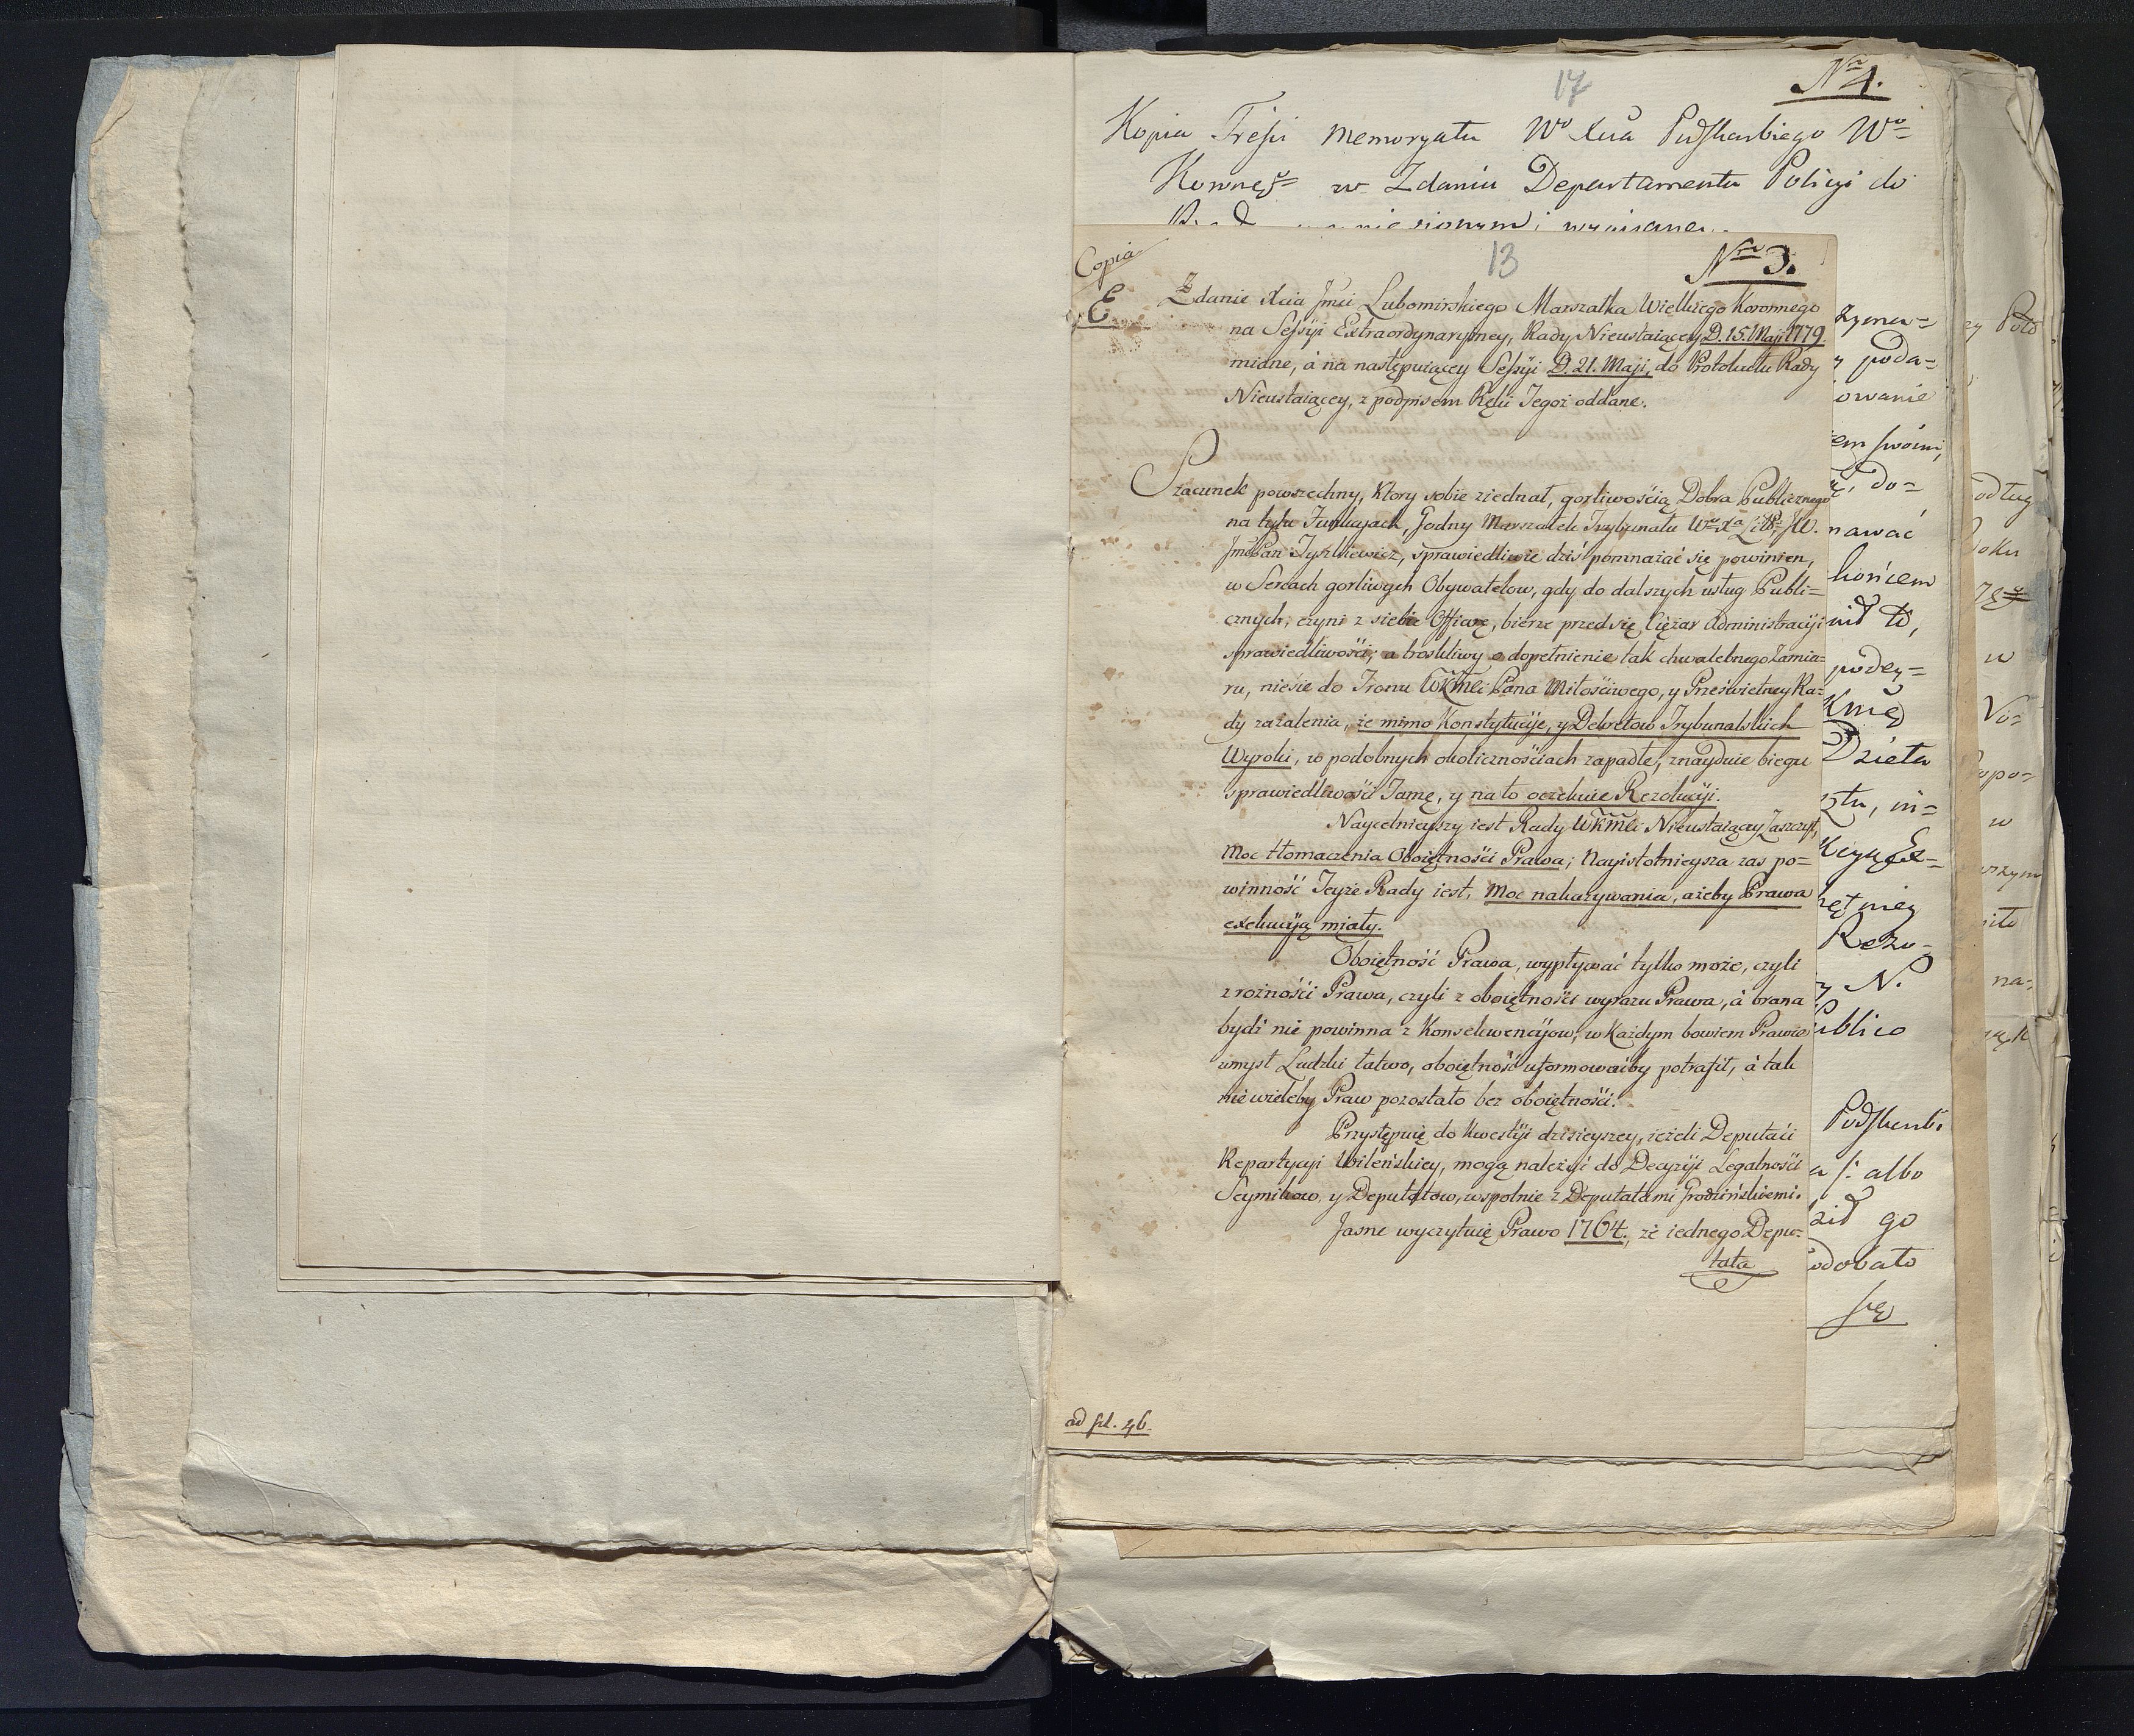 17
Nro 4.
Kopia Treści Memoryału Wo Xcia Podskarbiego Wo
Koronego w Zdaniu Departamentu Policyi do
Copia
13
Nro 3.
E
Zdanie Xcia Jmci Lubomirskiego Marszałka Wielkiego Koronnego
na Sessyi Extraordynaryiney, Rady Nieustaiącey D. 15. Maji 1779.
miane, á na następuiącey Sessyi D. 21. Maji, do Protokułu Rady
Nieustaiącey, z podpisem Ręki Jegoż oddane.
Szacunek powszechny, ktory sobie ziednał, gorliwością Dobra Publicznego
na tylu Funkcyach, Godny Marszałek Trybunału Wo Xa Litt: JW.
Jmć Pan Tyszkiewicz, sprawiedliwie dziś pomnażać się powinien,
w Sercach gorliwych Obywatelow, gdy do dalszych usług Publi=
cznych, czyni z siebie Offiarę, bierze przed się Ciężar Administracyi
sprawiedliwości; a troskliwy o dopełnienie tak chwalebnego Zamia=
ru, niesie do Tronu WKMci Pana Miłościwego, y Prześwietney Ra=
dy zażalenia, że mimo Konstytucyje, y Dekretow Trybunalskich
Wyroki, w podobnych okolicznościach zapadłe, znayduie biegu
sprawiedliwości Tamę, y na to oczekuie Rezolucyi.
Naycelnieyszy iest Rady WKMci Nieustaiącey Zaszczyt,
Moc tłomaczenia Oboiętności Prawa; Nayistotnieysza zas po=
winność Teyże Rady iest, Moc nakazywania, ażeby Prawa
exekucyją miały.
Oboiętność Prawa, wypływać tylko może, czyli
z rożności Prawa, czyli z oboiętności wyrazu Prawa, á brana
bydź nie powinna z Konsekwencyjow, w Każdym bowiem Prawie
umysł Ludzki łatwo, oboiętność uformowaćby potrafił, á tak
nie wieleby Praw pozostało bez oboiętności.
Przystępuię do Kwestyi dzisieyszey, ieżeli Deputaci
Repartycyi Wileńskiey, mogą należyć do Decyzyi Legalności
Seymikow, y Deputatow, wspolnie z Deputatami Grodzińskiemi.
Jasne wyczytuię Prawo 1764., że iednego Depu=
tata
ad fol. 46.
poda=
owanie
em swoim,
do=
nawać
końcem
Dzieła
Rezo=
y N.
Publico
Podskarbi
albo
go
się
podług
w
Vo=
w
na=